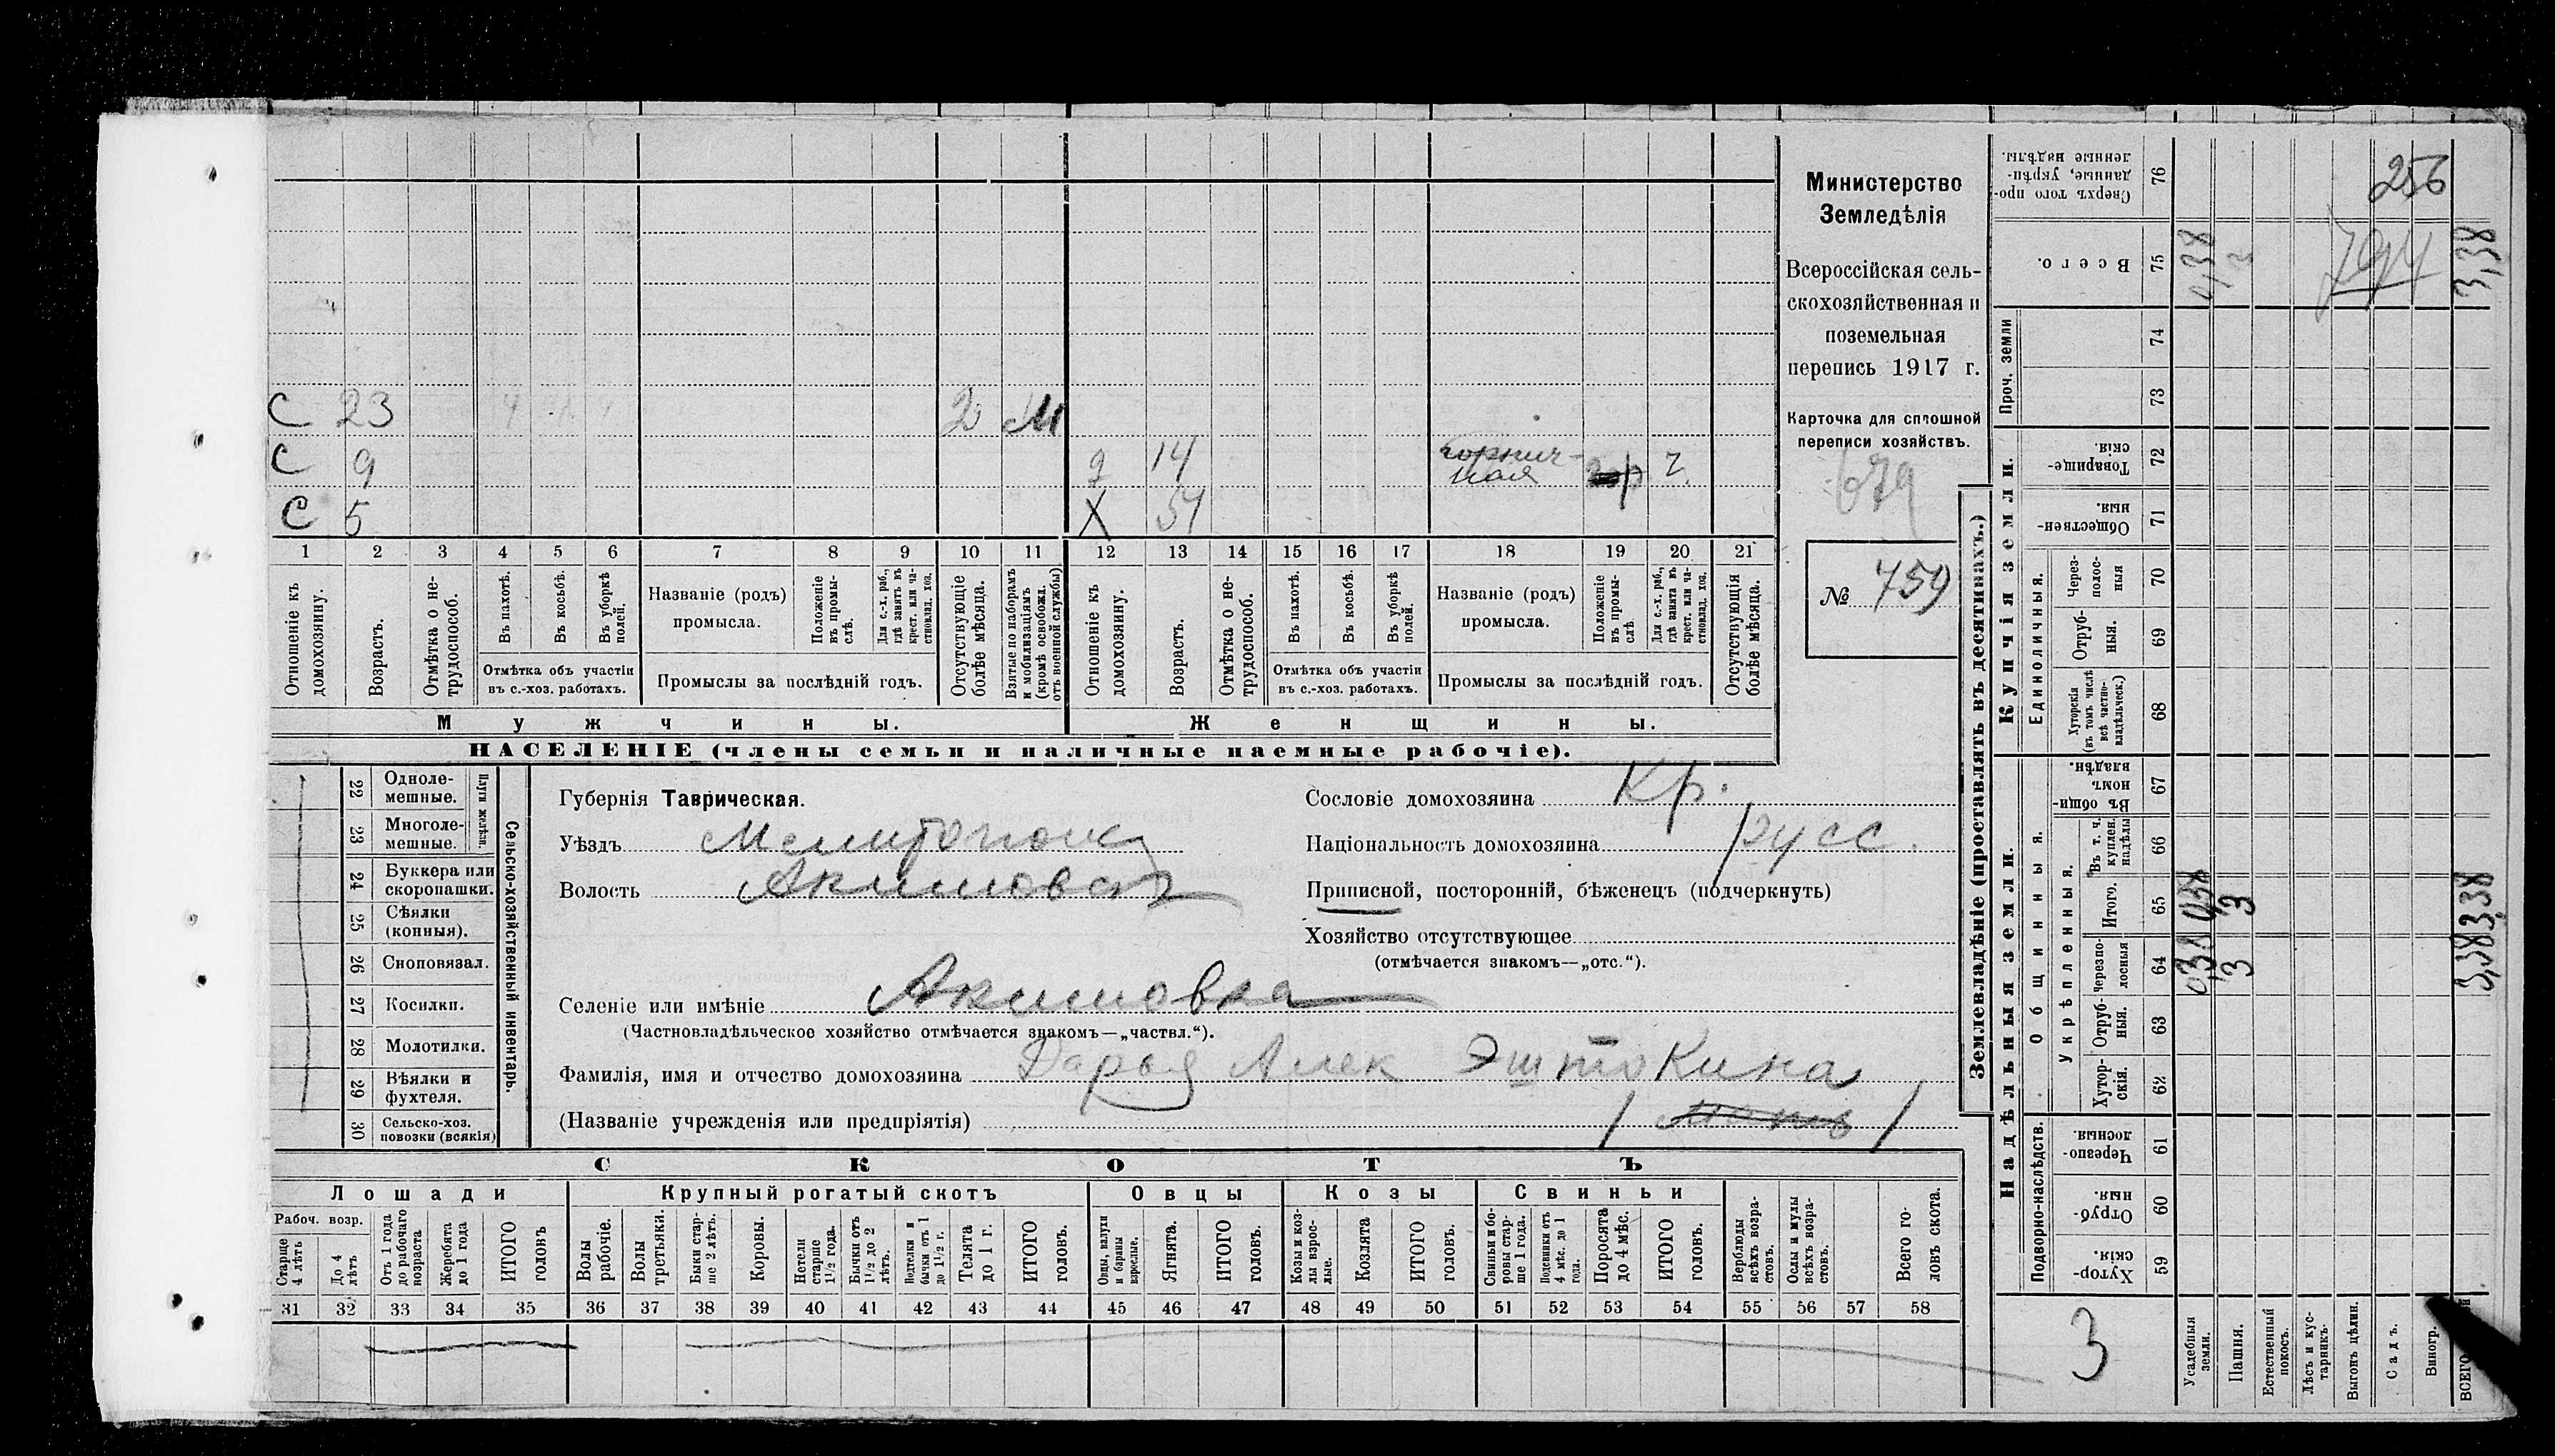 Министерство
Земледѣлія
Всероссійская сель-
скохозяйственная и
поземельная
перепись 1917 г.
Карточка для сплошной
переписи хозяйствъ.
679
№ 759
С 23 2 М
С 9 14 горнич-
ная
С 5 Х 51
1 2 3 4 5 6 7 8 9 10 11 12 13 14 15 16 17 18 19 20 21
Отношеніе къ домохозяину.
Возрастъ.
Отмѣтка о не-трудоспособ.
Въ пахотѣ.
Въ косьбѣ.
Въ уборкѣ полей.
Отмѣтка объ участіи
въ с.-хоз. работахъ.
Названіе (родъ)
промысла.
Положеніе въ промы-слѣ.
Для с.-х. раб., гдѣ занятъ въ крест. или ча-стновлад. хоз.
Промыслы за послѣдній годъ.
Отсутствующіе болѣе мѣсяца.
Взятые по наборамъ и мобилизаціямъ (кромѣ освобожд. отъ военной службы)
Отношеніе къ домохозяину.
Возрастъ.
Отмѣтка о не-трудоспособ.
Въ пахотѣ.
Въ косьбѣ.
Въ уборкѣ полей.
Отмѣтка объ участіи
въ с.-хоз. работахъ.
Названіе (родъ)
промысла.
Положеніе въ промы-слѣ.
Для с.-х. раб., гдѣ занята въ крест. или ча-стновлад. хоз.
Промыслы за послѣдній годъ.
Отсутствующія болѣе мѣсяца.
Мужчины. Женщины.
НАСЕЛЕНІЕ (члены семьи и наличные наемные рабочіе).
22 Одноле-
мешные.
23 Многоле-
мешные.
Плуги желѣзн.
24 Буккера или
скоропашки.
25 Сѣялки
(конныя).
26 Сноповязал.
27 Косилки.
28 Молотилки.
29 Вѣялки и
фухтеля.
30 Сельско-хоз.
повозки (всякія)
Сельско-хозяйственный инвентарь.
Губернія Таврическая.
Уѣздъ Мелитопольс
Волость Акимовск
Селеніе или имѣніе Акимовка
(Частновладѣльческое хозяйство отмѣчается знакомъ—„частвл.“).
Фамилія, имя и отчество домохозяина Дарья Алек Эштокина
(Названіе учрежденія или предпріятія)
Сословіе домохозяина Кр.
Національность домохозяина русс.
Приписной, посторонній, бѣженецъ (подчеркнуть)
Хозяйство отсутствующее
(отмѣчается знакомъ—„отс.“).
СКОТЪ
Лошади Крупный рогатый скотъ Овцы Козы Свиньи
Рабоч. возр.
Старше 4 лѣтъ
До 4 лѣтъ
Отъ 1 года до рабочаго возраста
Жеребята до 1 года
ИТОГО головъ
Волы рабочіе.
Волы третьяки.
Быки стар-ше 2 лѣтъ.
Коровы.
Нетели старше 1½ года.
Бычки отъ 1½ до 2 лѣтъ.
Подтелки и бычки отъ 1 до 1½ г.
Телята до 1 г.
ИТОГО головъ.
Овцы, валухи и бараны взрослые.
Ягнята.
ИТОГО головъ.
Козы и коз-лы взрос-лые.
Козлята
ИТОГО головъ.
Свиньи и бо-ровы стар-ше 1 года.
Подсвинки отъ 4 мѣс. до 1 года.
Поросята до 4 мѣс.
ИТОГО головъ.
Верблюды всѣхъ возра-стовъ.
Ослы и мулы всѣхъ возра-стовъ.
Всего го-ловъ скота.
31 32 33 34 35 36 37 38 39 40 41 42 43 44 45 46 47 48 49 50 51 52 53 54 55 56 57 58
Землевладѣніе (проставлять въ десятинахъ.)
Надѣльныя земли. Купчія земли.
Проч. земли
Подворно-наслѣдств.
Общинныя.
Укрѣпленныя.
Единоличныя.
Хутор-скія. 59
Отруб-ныя. 60
Черезпо-лосныя. 61
Хутор-скія. 62
Отруб-ныя. 63
Черезпо-лосныя 64
Итого. 65
Въ т. ч. куплен. надѣлы 66
Въ общи-номъ владѣн. 67
Хуторскія (въ томъ числѣ всѣ частно-владѣльческ.) 68
Отруб-ныя. 69
Через-полос-ныя 70
Обществен-ныя. 71
Товарище-скія. 72
73
74
Всего. 75
Сверхъ того про-данные, укрѣп-ленные надѣлы. 76
Усадебныя земли. 0,38 0,38
Пашня. 3 3 3
Естественный покосъ.
Лѣсъ и кус-тарникъ.
Выгонъ цѣлин.
Садъ.
Виногр.
ВСЕГО 3,38 3,38 3,38
256
794
3